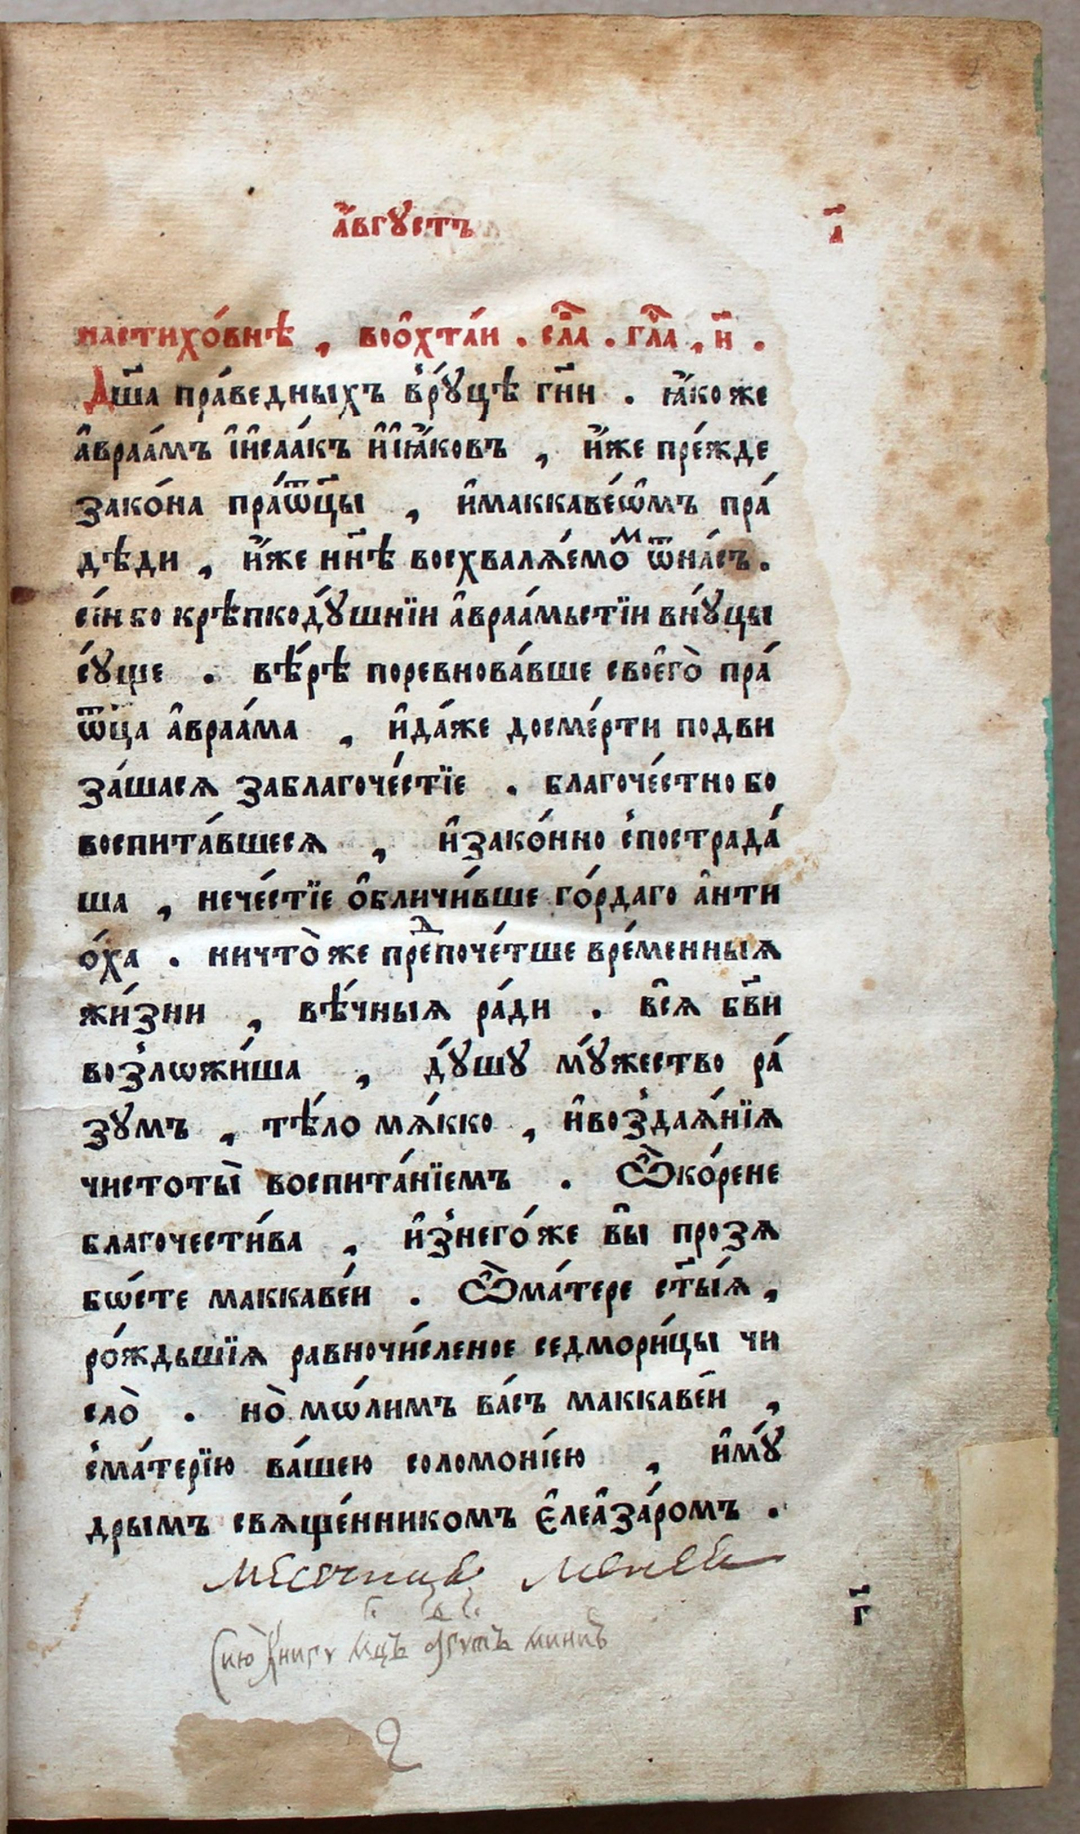 а҆́вгꙋстъ
а҃
настихо́внѣ , воѻ҆хта́и . сла́ . гла́ , и҃ .
Дш҃а пра́ведныхъ в̾рꙋцѣ̀ гн҃и . ꙗ҆́коже
а҆враа́мъ і҆и҆саа́къ и҆і҆ꙗ҆́ковъ , и҆́же пре́жде
зако́на пра́ѿц҃ы , и҆маккаве́ѡ҆мъ пра́
дѣди , и҆́же нн҃ѣ восхвалѧ́емоⷨ ѿна́съ .
сі́и бо крѣпкодꙋ́шнїи а҆враа́мьстїи внꙋ́цы
сꙋ́ще . вѣ́рѣ поревнова́вше своегѡ̀ пра́
ѿц҃а а҆враа́ма , и҆да́же досме́рти подви
за́шасѧ заблагоче́стїе . благоче́стно бо
воспита́вшесѧ , и҆зако́нно с̾пострада́
ша , нече́стїе ѻ҆бличи́вше го́рдаго а҆нти
о́ха . ничто̀же преⷣпоче́тше вре́менныѧ
жи́зни , вѣ́чныѧ ра́ди . всѧ̑ бг҃ви
воз̾лѡжи́ша , дꙋ́шꙋ мꙋ́жество ра́
зꙋмъ , тѣ́ло мѧ́кко , и҆воз̾даѧ́нїѧ
чистоты̀ воспита́нїемъ . Ѽко́рене
благочести́ва , и҆з̾него́же вы̑ прозѧ
бѡ́сте маккаве́и . Ѽма́тере ст҃ы́ѧ ,
ро́ждьшїѧ равночи́сленое седмори́цы чи
сло̀ . но̀ мѡ́лимъ ва́съ маккаве́и ,
с̾ма́терїю ва́шею соломоні́ею , и҆мꙋ́
дрымъ свѧще́нникомъ є҆леа҆за́ромъ .
г҃
Сию книгу мцъ
2